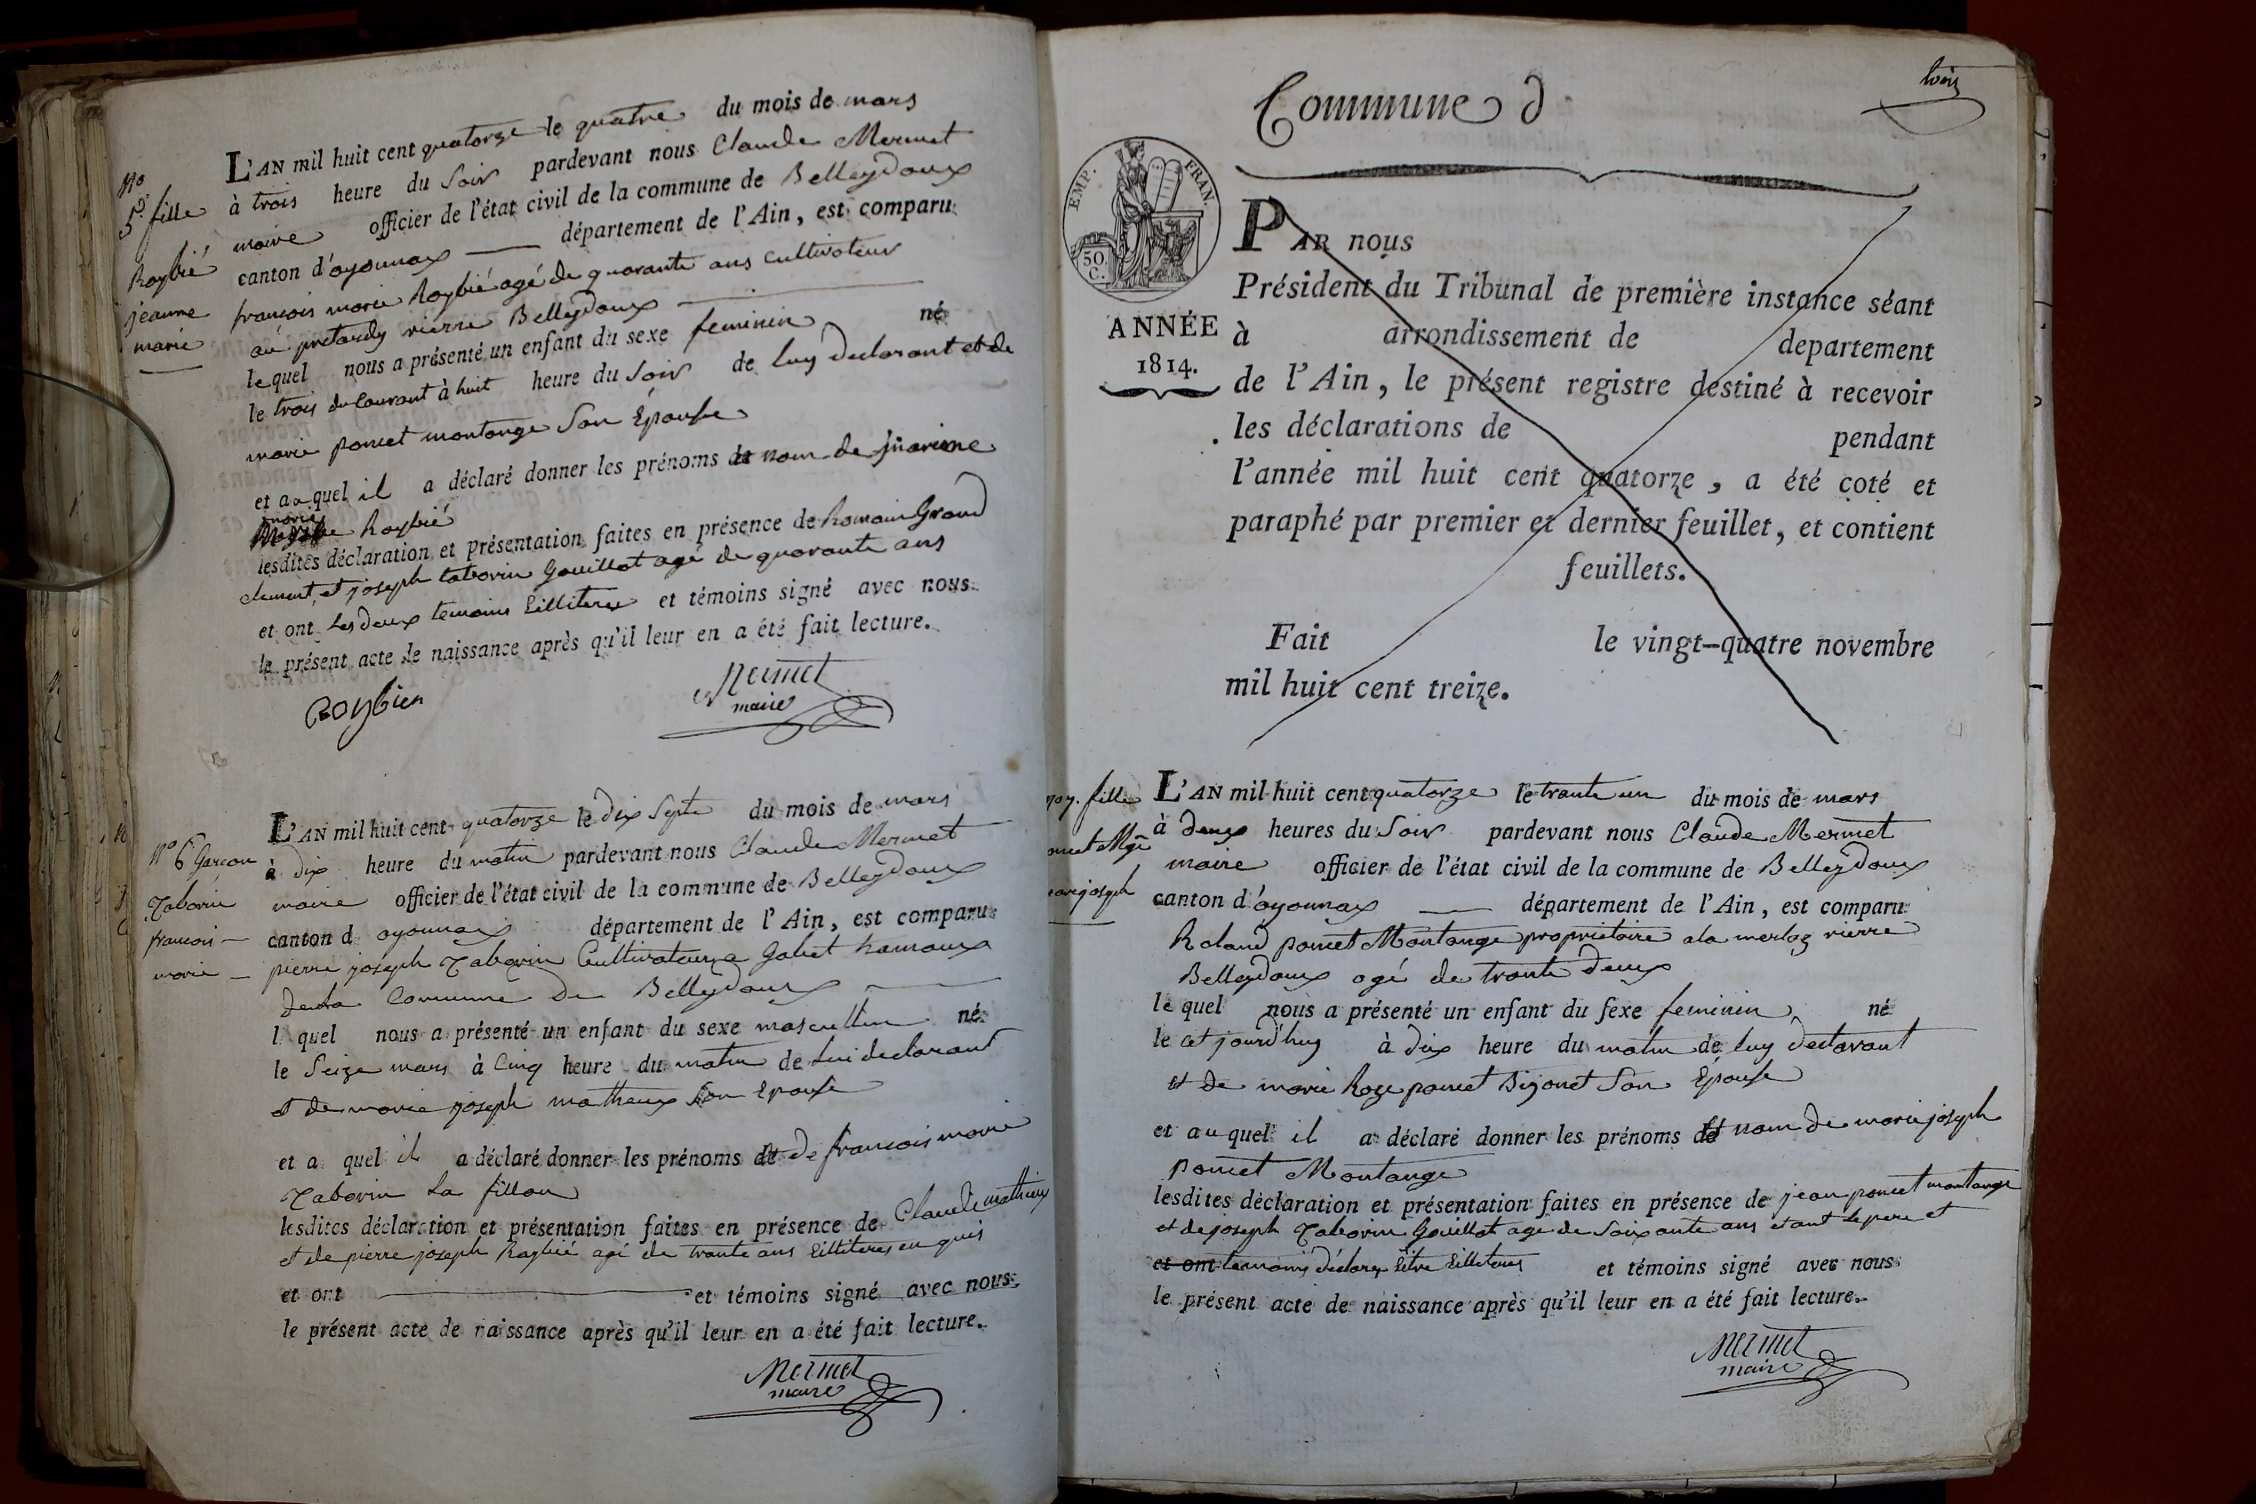 No
5e fille
Roybié
jeanne
marie
L'AN mil huit cent quatorze le quatre du mois de mars
à trois heure du Soir pardevant nous Claude Mermet
maire officier de l'état civil de la commune de Belleydoux
canton d'oyonnax département de l'Ain, est comparu
françois marie Roybié agé de quarante ans cultivateur
au pretardy rierre Belleydoux
lequel nous a présenté un enfant du sexe feminin né
le trois du Courant à huit heure du Soir de luy declarant et de
marie poncet montange Son Épouse
et auquel il a déclaré donner les prénoms et nom de
marie Roybié
lesdites déclaration et présentation faites en présence de Romain Grand
clement, et joseph taborin Gouillot agé de quarante ans
et ont les deux temoins Eilliteres et témoins signé avec nous
le présent acte de naissance après qu'il leur en a été fait lecture.
Roybier
Mermet
maire
No 6e Garçon
Taborin
francois
marie
L'AN mil huit cent quatorze le dix Septe du mois de mars
à dix heure du matin pardevant nous Claude Mermet
maire officier de l'état civil de la commune de Belleydoux
canton d oyonnax département de l'Ain, est comparu
pierre joseph Taborin Cultivateur a Gobet hamaux
de la Commune de Belleydoux
l quel nous a présenté un enfant du sexe mascullin né
le Seize mars à Cinq heure du matin de Lui declarant
et de marie joseph matheux Son Epouse
et a quel il a déclaré donner les prénoms de francois marie
Taborin La fillon
lesdites déclaration et présentation faites en présence de Claude mathieux
et de pierre joseph Raybié agé de trante ans Eilliteres en quis
et ont et témoins signé avec nous
le présent acte de naissance après qu'il leur en a été fait lecture.
Mermet
maire
Commune d
trois
EMP. FRAN.
50
C.
ANNÉE
1814.
PAR nous
Président du Tribunal de première instance séant
à arrondissement de departement
de l'Ain, le présent registre destiné à recevoir
les déclarations de pendant
l'année mil huit cent quatorze, a été coté et
paraphé par premier et dernier feuillet, et contient
feuillets.
Fait le vingt-quatre novembre
mil huit cent treize.
no 7. fille
oncet Mge
arie joseph
L'AN mil huit cent quatorze le trante un du mois de mars
à deux heures du Soir pardevant nous Claude Mermet
maire officier de l'état civil de la commune de Belleydoux
canton d'oyonnax département de l'Ain, est comparu
Roland poncet Montange proprietaire a la merloz rierre
Belleydoux agé de trante deux
le quel nous a présenté un enfant du sexe feminin né
le cet jourd'huy à dix heure du matin de luy declarant
et de marie Roze poncet Bijonet Son Épouse
et au quel il a déclaré donner les prénoms et nom de marie joseph
poncet Montange
lesdites déclaration et présentation faites en présence de jean poncet montange
et de joseph Taborin Gouillot age de Soixante ans etant le pere et
et ont temoins déclarez Être Eilliteres et témoins signé avec nous
le présent acte de naissance après qu'il leur en a été fait lecture.
Mermet
maire